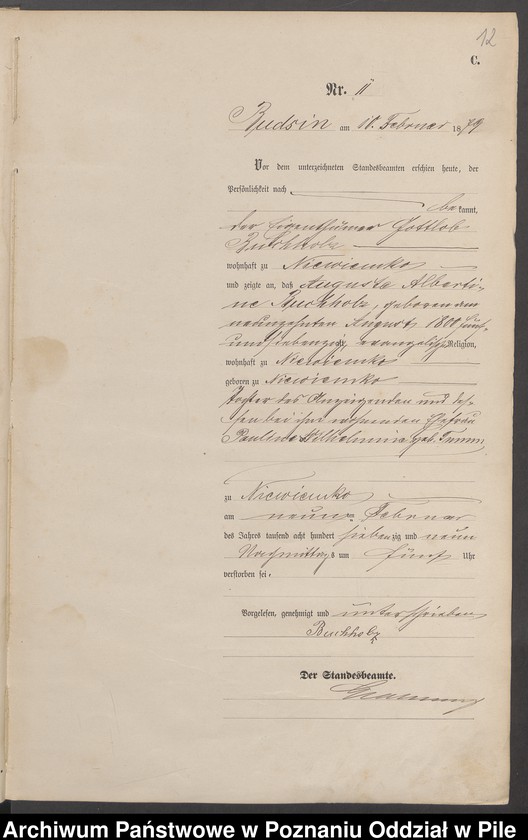 12
C.
Nr. 11
Budsin am 10. Februar 1879
Vor dem unterzeichneten Standesbeamten erschien heute, der
Persönlichkeit nach
bekannt,
der Eigenthümer Gottlob
Buchholz
wohnhaft zu Niewiemko
und zeigte an, daß Augusta Alberti-
ne Buchholz, geboren am
neunzehnten August 1800 fünf
und siebenzig, evangelischer Religion,
wohnhaft zu Niewiemko
geboren zu Niewiemko
Tochter des Anzeigenden und des-
sen bei ihm wohnenden Ehefrau
Pauline Wilhelmine geb. Timm
zu Niewiemko
am neunten Februar
des Jahres tausend acht hundert siebenzig und neun
Nachmittags um fünf Uhr
verstorben sei.
Vorgelesen, genehmigt und unterschrieben
Buchholz
Der Standesbeamte.
Archiwum Państwowe w Poznaniu Oddział w Pile